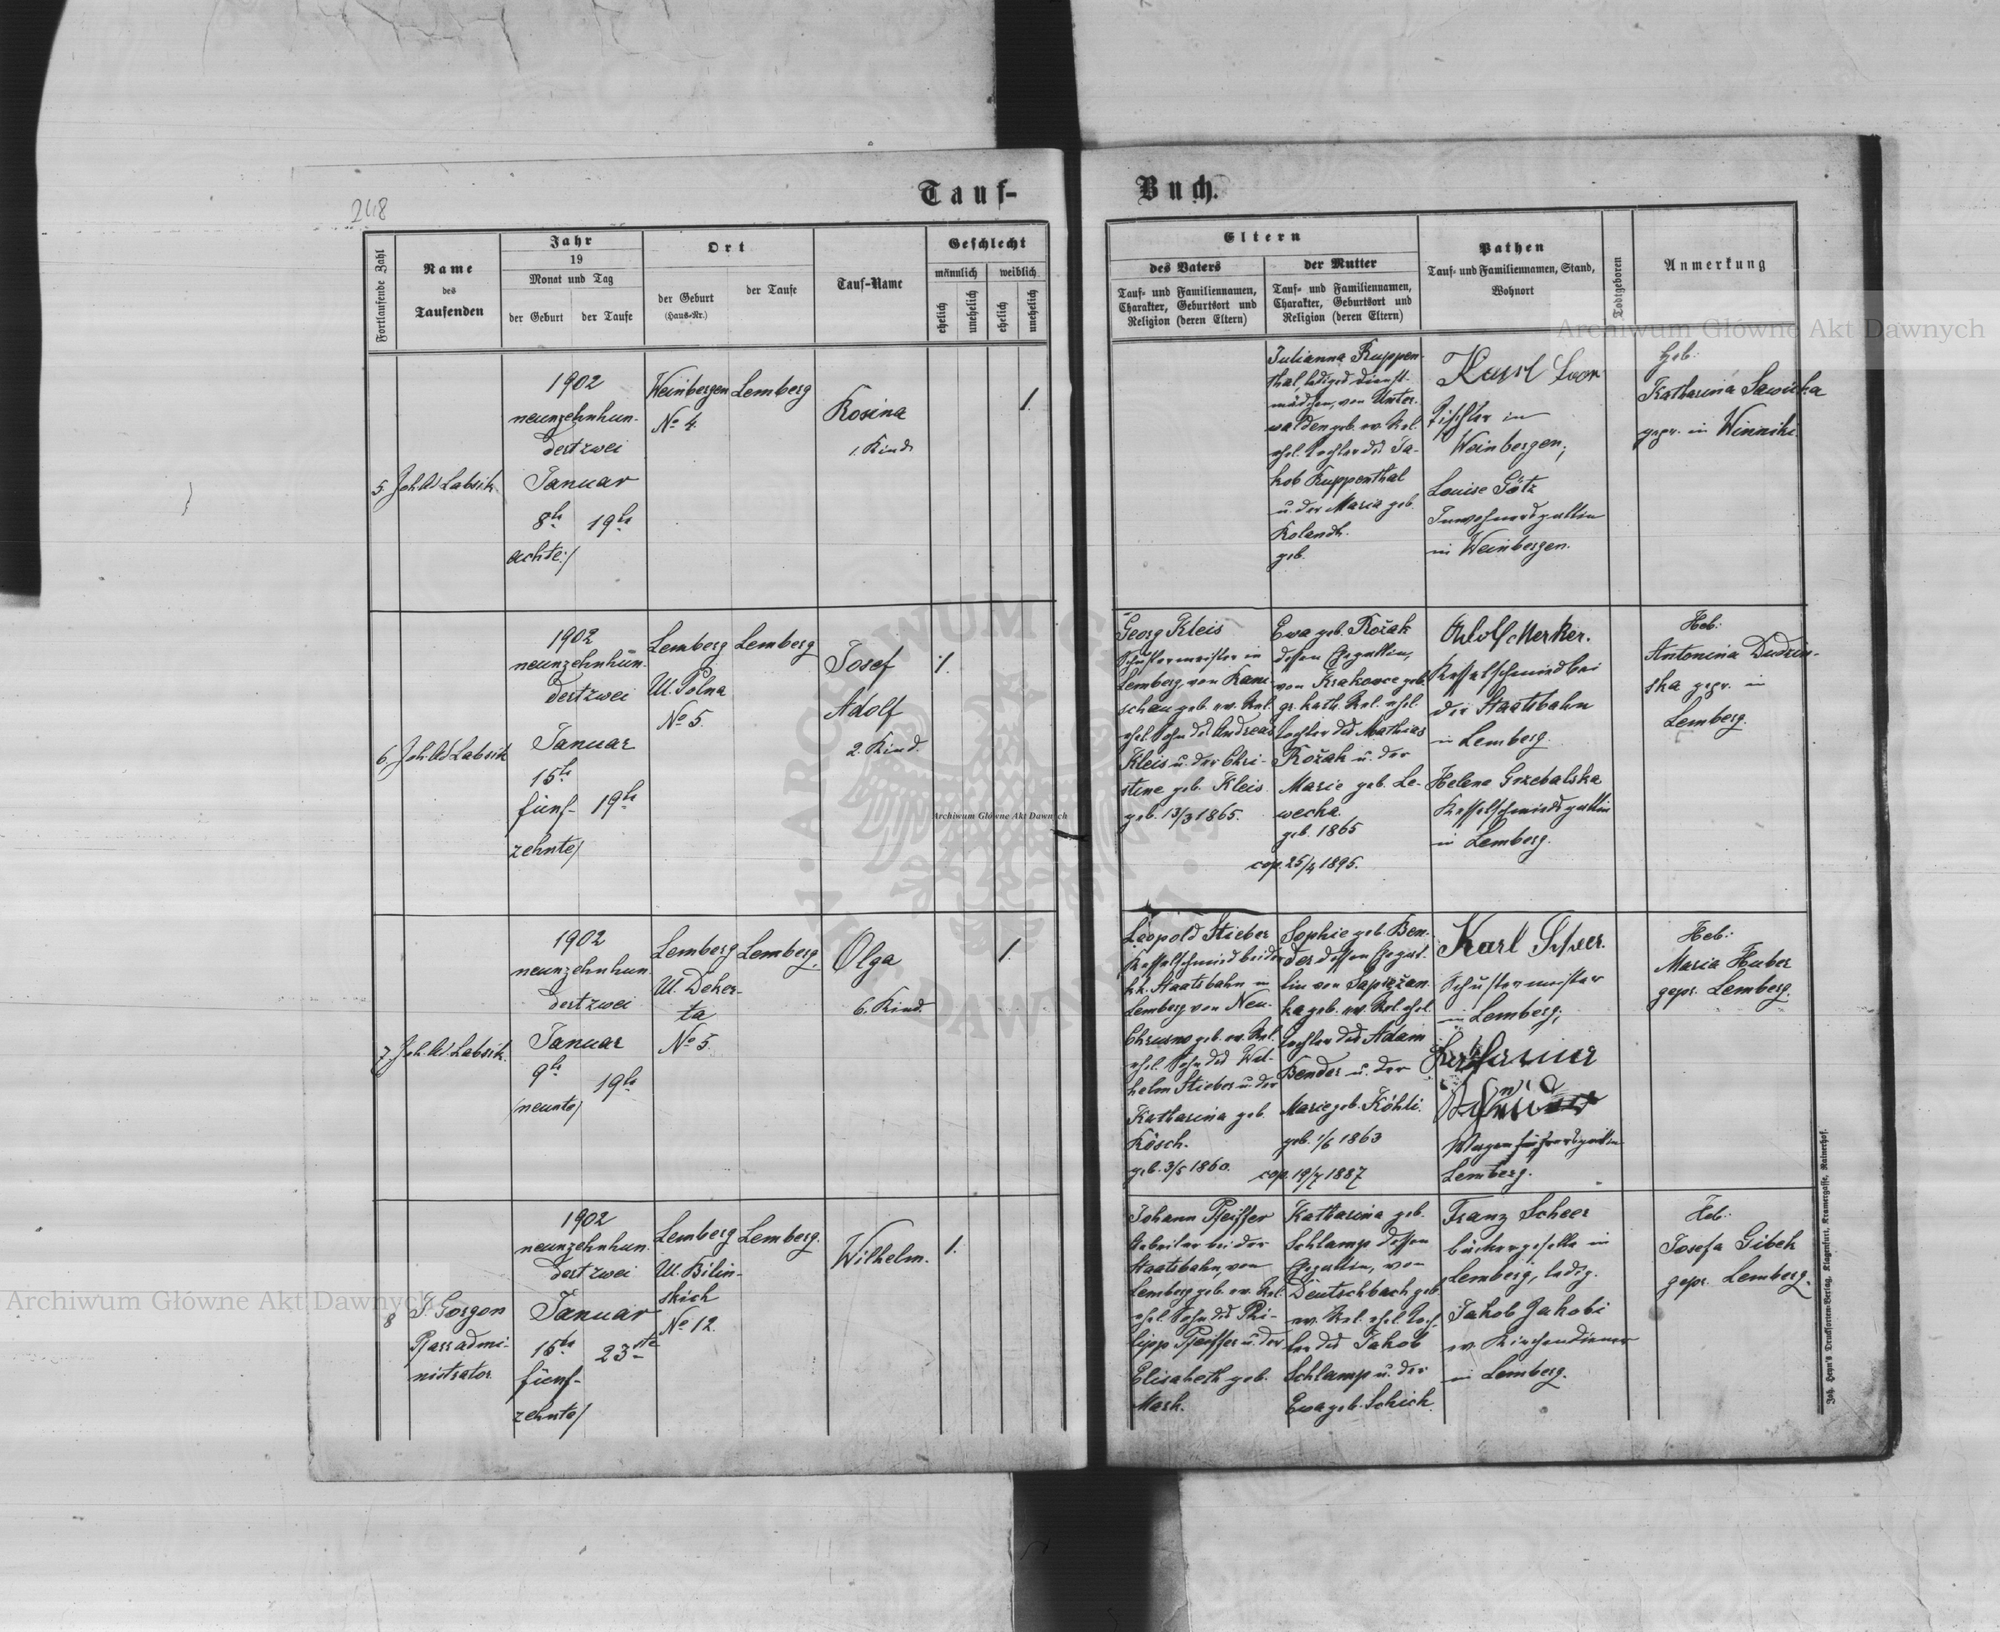 248
Tauf-
Buch.
Fortlaufende Zahl
Name
des
Taufenden
Jahr
19
Monat und Tag
der Geburt
der Taufe
Ort
der Geburt
(Haus-Nr.)
der Taufe
Tauf-Name
Geschlecht
männlich
weiblich
ehelich
unehelich
ehelich
unehelich
Eltern
des Vaters
Tauf- und Familiennamen,
Charakter, Geburtsort und
Religion (deren Eltern)
der Mutter
Tauf- und Familiennamen,
Charakter, Geburtsort und
Religion (deren Eltern)
Pathen
Tauf- und Familiennamen, Stand,
Wohnort
Todtgeboren
Anmerkung
5
Joh. Labsik
1902
neunzehnhun-
dertzwei
Januar
8te
19te
achte/
Weinbergen
No 4.
Lemberg
Rosina
1. Kind
1.
Julianna Ruppen-
thal, lediges Dienst-
mädchen, von Unter-
walden geb. ev. Rel.
ehel. Tochter des Ja-
kob Ruppenthal
u. der Maria geb.
Rolandh.
geb.
Karl
Tischler in
Weinbergen;
Louise Götz
Inwohnersgattin
in Weinbergen.
Heb:
Katharina Sawicka
gepr. in Winniki
6
Joh. Labsik
1902
neunzehnhun-
dertzwei
Januar
15te
fünf-
19te
zehnte/
Lemberg
Ul. Polna
No 5.
Lemberg
Josef
Adolf
2. Kind.
1.
Georg Kleis
Schustermeister in
Lemberg, von Kami-
schau geb. ev. Rel.
ehel. Sohn des Andreas
Kleis u. der Chri-
stine geb. Kleis.
geb. 13/3 1865.
Ewa geb. Rožak
dessen Ehegattin,
von Krakovec geb.
gr. kath. Rel. ehel.
Tochter des Mathias
Rožak u. der
Marie geb. Le-
wecka.
geb. 1865
cop. 25/4 1895.
Adolf Merker.
Kesselschmied bei
der Staatsbahn
in Lemberg.
Helene Grzebalska
Kesselschmiedsgattin
in Lemberg.
Heb:
Antonina Dudzin-
ska gepr. in
Lemberg.
7
Joh. Labsik.
1902
neunzehnhun-
dertzwei
Januar
9te
19te
/neunte/
Lemberg
Ul. Deker-
ta
No 5.
Lemberg.
Olga
6. Kind.
1.
Leopold Stieber
Kesselschmied bei der
k.k. Staatsbahn in
Lemberg von Neu-
Chrusno geb. ev. Rel.
ehel. Sohn des Wil-
helm Stieber u. der
Katharina geb.
Kösch.
geb. 3/5 1860.
Sophie geb. Ben-
der dessen Ehegat-
tin von Saprežan-
ka geb. ev. Rel. ehel.
Tochter des Adam
Bender u. der
Marie geb. Köhli.
geb. 1/6 1863
cop. 19/7 1887
Karl Scheer.
Schustermeister
in Lemberg;
Katharina
Lemberg.
Heb:
Maria Huber
gepr. Lemberg.
8
J. Gorgon
Pfarradmi-
nistrator
1902
neunzehnhun-
dertzwei
Januar
15te
23ste
fünf-
zehnte/
Lemberg
Ul. Bilin-
skich
No 12.
Lemberg.
Wilhelm.
1.
Johann Pfeiffer
Arbeiter bei der
Staatsbahn, von
Lemberg geb. ev. Rel.
ehel. Sohn des Phi-
lipp Pfeiffer u. der
Elisabeth geb.
Mark.
Katharina geb.
Schlamp dessen
Ehegattin, von
Deutschbach geb.
ev. Rel. ehel. Toch-
ter des Jakob
Schlamp u. der
Ewa geb. Schick.
Franz Scheer
Bäckergeselle in
Lemberg, ledig.
Jakob Jakobi
ev. Kirchendiener
in Lemberg.
Heb:
Josefa Gibek
gepr. Lemberg.
Joh. Heyn's Drucksorten-Verlag, Klagenfurt, Kramergasse, Rainerhof.
Archiwum Główne Akt Dawnych
Archiwum Główne Akt Dawnych
Archiwum Główne Akt Dawnych